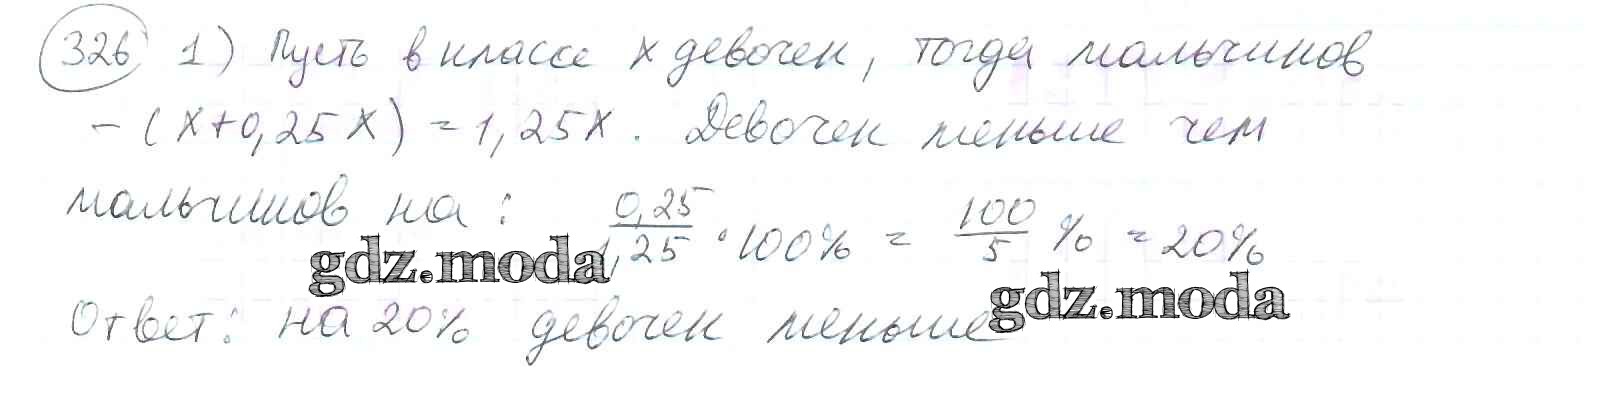 326 1) Пусть в классе x девочек, тогда мальчиков
- (x+0,25x) = 1,25x. Девочек меньше чем
мальчиков на: 0,25/1,25 · 100% = 100/5 % = 20%
gdz.moda
gdz.moda
Ответ: на 20% девочек меньше